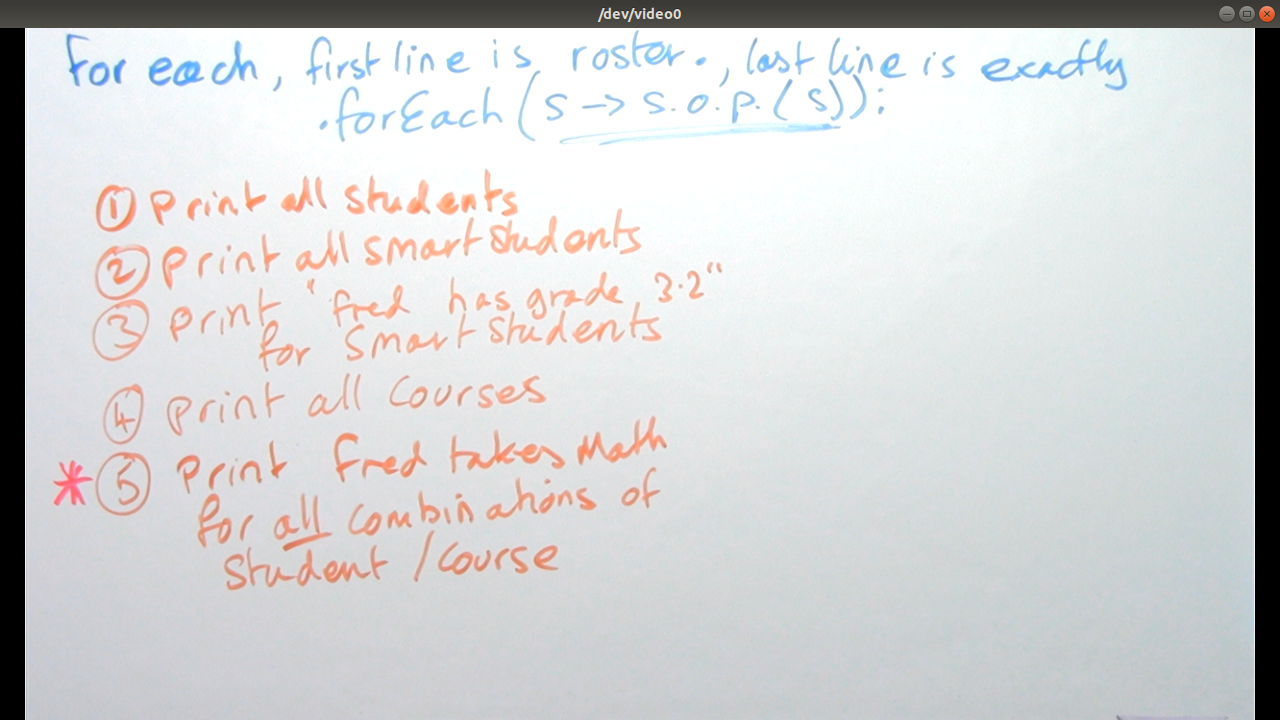 /dev/video0
For each, first line is roster. , last line is exactly
.forEach(s -> s.o.p.(s));
① Print all students
② Print all smart students
③ Print "Fred has grade, 3.2"
for smart students
④ Print all courses
* ⑤ Print Fred takes Math
for all combinations of
student / course